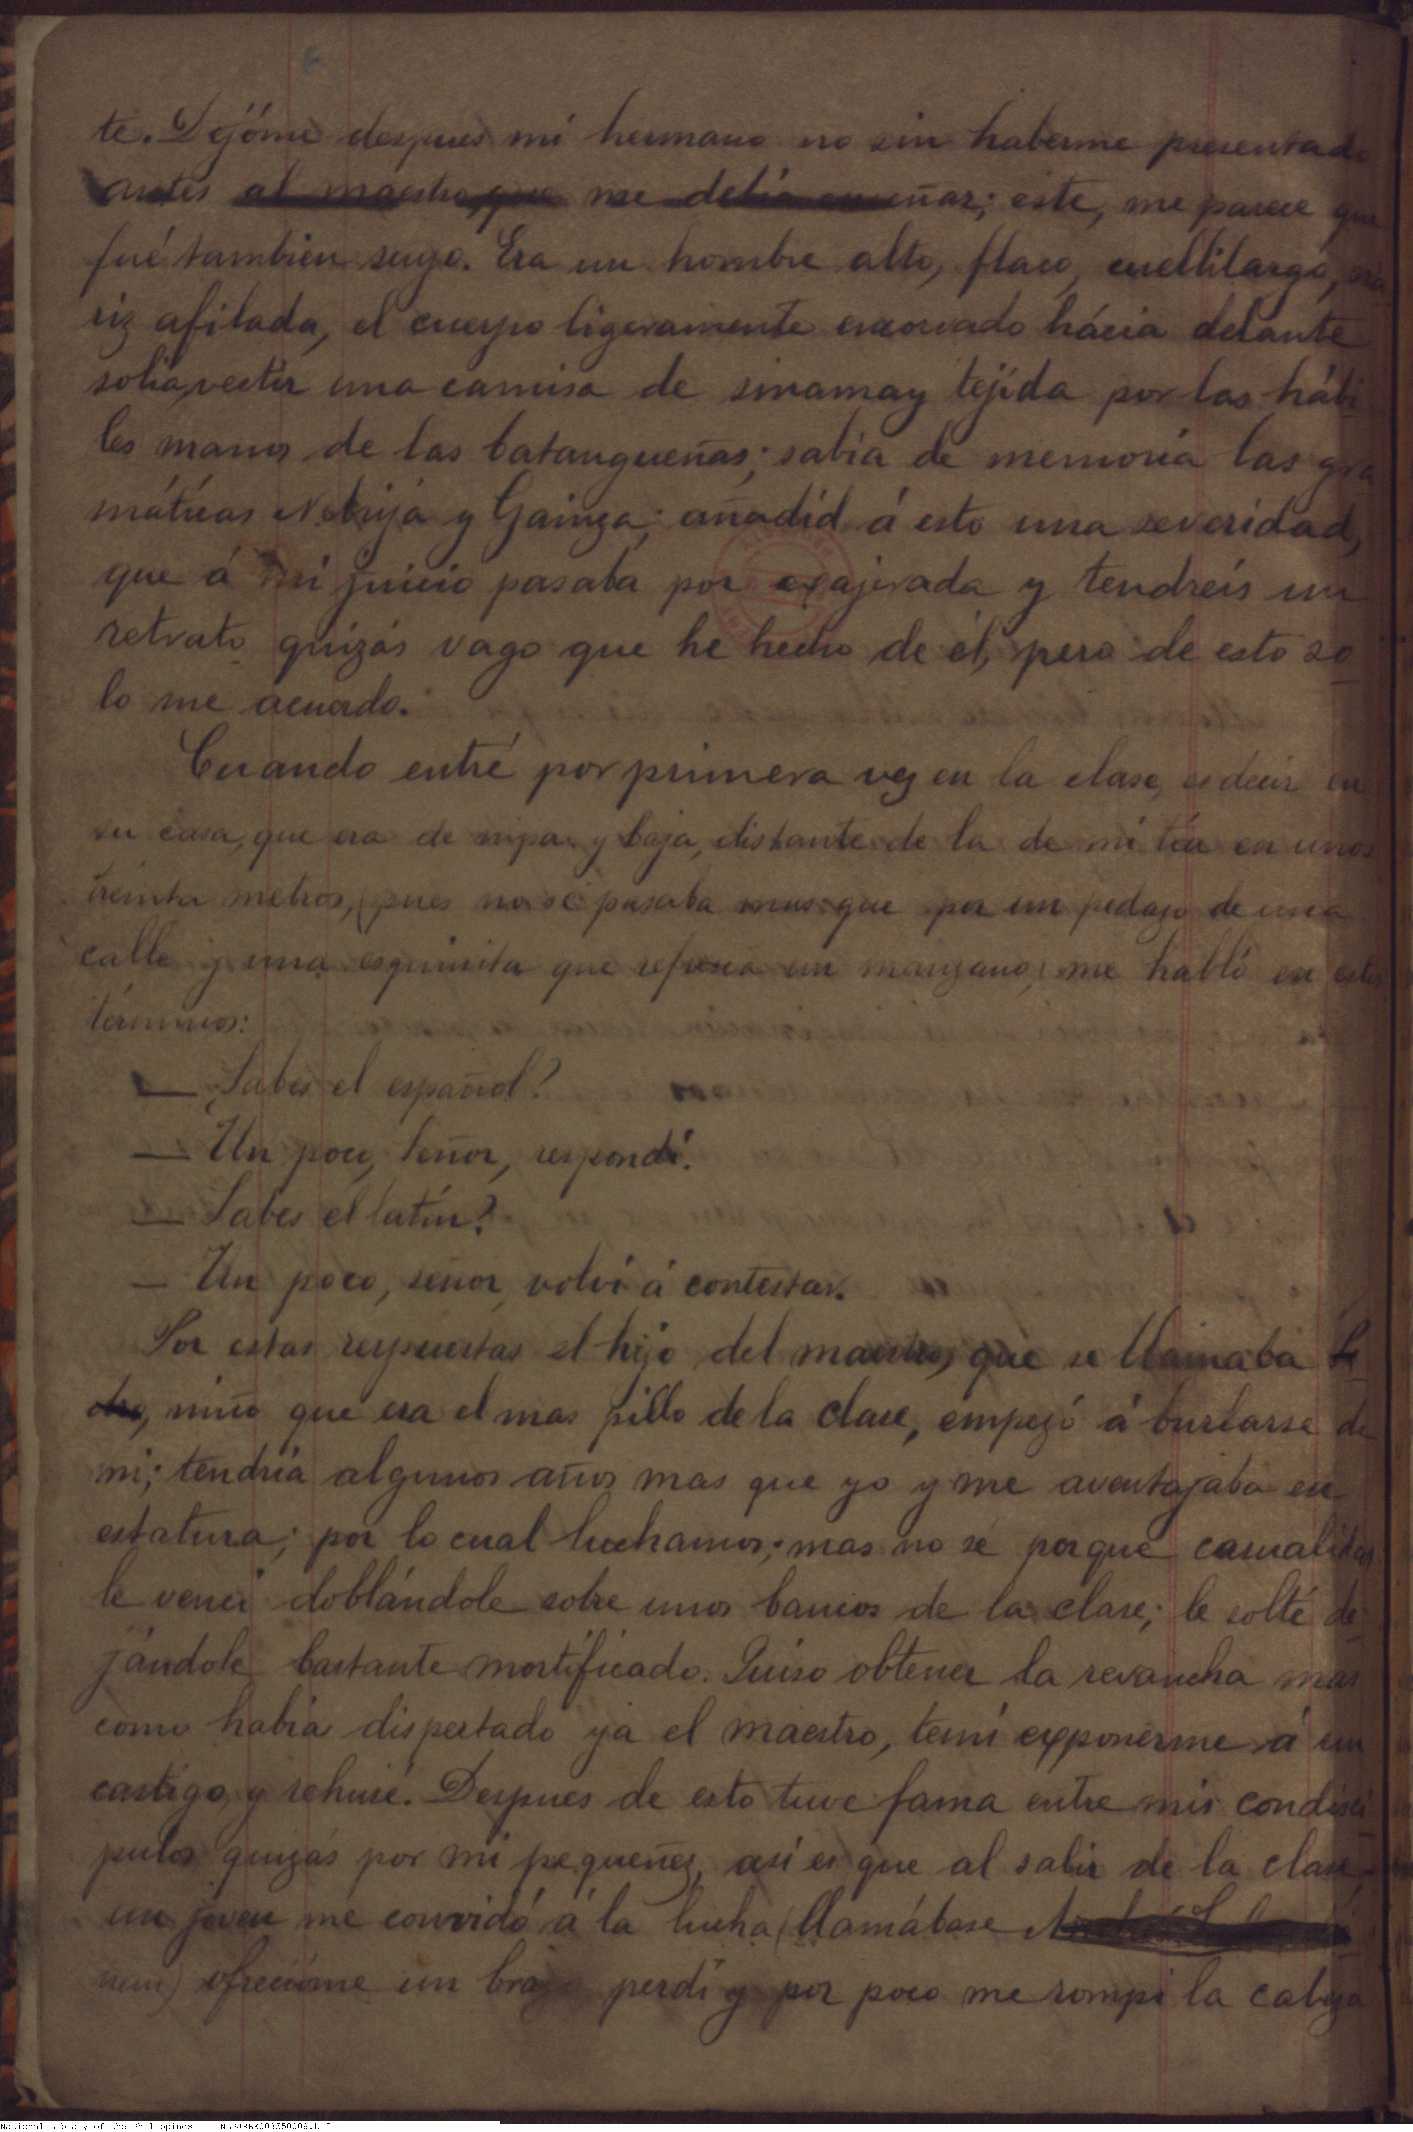 te. Dejóme despues mi hermano no sin haberme presentado
antes al maestro, que me debía enseñar; este, me parece que
fué tambien suyo. Era un hombre alto, flaco, cuellilargo, na
riz afilada, el cuerpo ligeramente encorvado hácia delante
solia vestir una camisa de sinamay tejida por las hábi
les manos de las batangueñas; sabía de memoria las gra
máticas Nebrija y Gainza; añadid á esto una severidad,
que á mi juicio pasaba por exajerada y tendreis un
retrato quizás vago que he hecho de él, pero de esto so
lo me acuerdo.
Cuando entré por primera vez en la clase, es decir en
su casa, que era de nipa y baja, distante de la de mi tía en unos
treinta metros, (pues no se pasaba mas que por un pedazo de una
calle y una esquinita que refresca un manzano) me habló en estos
términos:
— Sabes el español?
— Un poco, Señor, respondí.
— Sabes el latín?
— Un poco, señor, volví á contestar.
Por estas respuestas el hijo del maestro, que se llamaba Pe
dro, niño que era el mas pillo de la clase, empezó á burlarse de
mi; tendría algunos años mas que yo y me aventajaba en
estatura; por lo cual luchamos; mas no sé porque casualidad
le vencí doblándole sobre unos bancos de la clase; le solté de
jándole bastante mortificado. Quiso obtener la revancha mas
como había dispertado ya el maestro, temí exponerme á un
castigo y rehusé. Despues de esto tuve fama entre mis condisci
pulos quizás por mi pequeñez, así es que al salir de la clase
un joven me convidó á la lucha (llamábase
ofrecióme un brazo perdí y por poco me rompí la cabeza